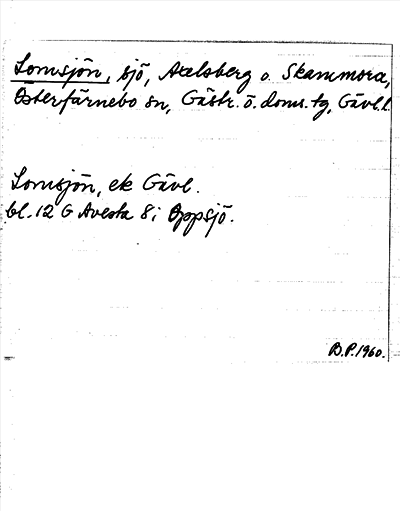 Lomsjön, sjö, Axelsberg o. Skammora,
Österfärnebo sn, Gästr. ö. doms. tg, Gävl. l.
Lomsjön, ek Gävl.
bl. 12 G Avesta 8 i Oppsjö.
B.P. 1960.